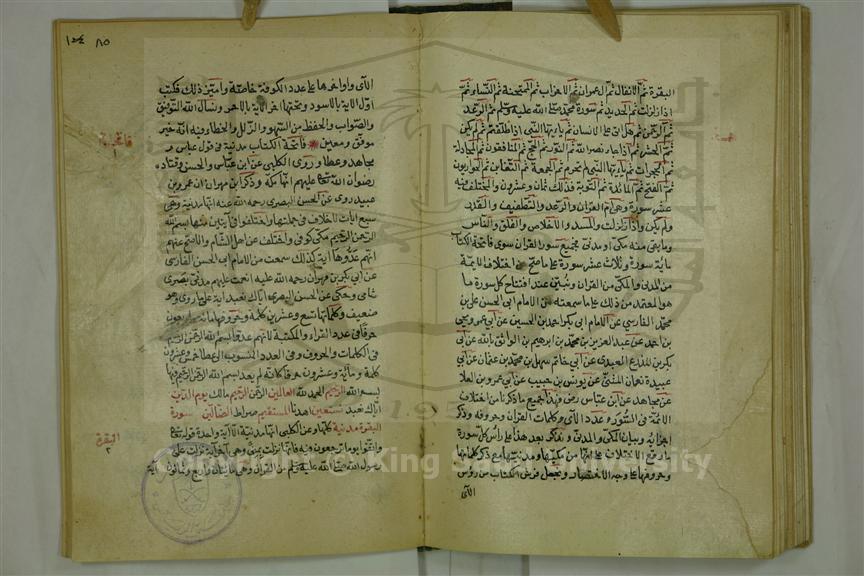 البقرة ثمّ الانفال ثمّ ال عمران ثمّ الاحزاب ثمّ الممتحنة ثمّ النساء ثمّ
اذا زلزلت ثمّ الحديد ثمّ سورة محمّد صلى الله عليه وسلم ثمّ الرعد
ثمّ الرحمن ثمّ هل اتى على الانسان ثمّ يا ايها النبى اذا طلقتم ثمّ لم يكن
ثمّ الحشر ثمّ اذا جاء نصر الله ثمّ النور ثمّ الحج ثمّ المنافقون ثمّ المجادلة
ثمّ الحجرات ثمّ يا ايها النبى لم تحرم ثمّ الجمعة ثمّ التغابن ثمّ الحواريون
ثمّ الفتح ثمّ المائدة ثمّ التوبة فذلك ثمان وعشرون والمختلف فيه
عشر سورة وهى ام القران والرعد والتطفيف والقدر
ولم يكن واذا زلزلت والمسد والاخلاص والفلق والناس
وما بقى منه مكى او مدنى فجميع سور القران سوى فاتحة الكتاب
مائة سورة وثلاث عشر سورة على ما صح من اختلاف الائمة
من المدنى والمكى من القران ونبين عند افتتاح كل سورة ما
هو المعتمد من ذلك على ما سمعته من الامام ابى الحسن على بن
محمّد الفارسى عن الامام ابى بكر احمد بن الحسين عن ابى عمرو يحيى
بن احمد عن عبد العزيز بن محمّد بن ابراهيم بن الواثق بالله عن ابى
بكر بن المنذر العبدى عن ابى حاتم سهل بن محمّد بن عثمان عن ابى
عبيدة معمر بن المثنى عن يونس بن حبيب عن ابى عمرو بن العلا
عن مجاهد عن ابن عباس رضى فهذا جميع ما ذكرنا من اختلاف
الائمة فى السور وعدد الآى وكلمات القران وحروفه وذكر
اجزائه وبيان المكى والمدنى ونذكر بعد هذا على راس كل سورة
ما وقع الاختلاف على انها من مكيتها ومدنيتها مع ذكر كلماتها
وحروفها على وجه الاختصار ونجعل فرش الكتاب من رؤس
الآى
١٣٤ ٨٥
الآى واواخرها على عدد الكوفة خاصة وامتين ذلك فكتب
اول الاية بالاسود ونختمها اخر الاية بالاحمر ونسال الله التوفيق
والصواب والحفظ من السهو والزلل والخطا ومنه انه خير
موفق ومعين فاتحة الكتاب مدنية فى قول عباس و
مجاهد وعطا وروى الكلبى عن ابن عباس والحسن وقتادة
رضوان الله عليهم انها مكة وذكر ابن مهران ان عمرو بن
عبيد روى عن الحسن البصرى رحمه الله عنه انها مدنية وهى
سبع ايات لا خلاف فى جملتها واختلفوا فى آيتين منها بسم الله
الرحمن الرحيم مكى كوفى واختلف عن اهل الشام والاصح عنهم
انهم عدوها آية كذلك سمعت من الامام ابى الحسن الفارسى
عن ابى بكر بن مهران رحمه الله عليه انعمت عليهم مدنى بصرى
شامى وحكى عن الحسن البصرى اياك نعبد اية على ما روى وهو
ضعيف وكلماتها تسع وعشرين كلمة وحروفها مائة واربعون
حرفا فى عدد القراء والمكتبة لانهم عدوا بسم الله الرحمن الرحيم
فى الكلمات والحروف وفى العدد المنسوب الى عطا خمس وعشرون
كلمة ومائة وعشرون حرفا كانه لم يعد بسم الله الرحمن الرحيم فيها
بسم الله الرحيم الحمد لله العالمين الرحمن الرحيم مالك يوم الدين
اياك نعبد نستعين اهدنا المستقيم صراط الضالين سورة
البقرة مدنية كلها وعن الكلبى انها مدنية الا آية واحدة قوله تعالى
واتقوا يوما ترجعون فيه فانها نزلت بمنى وهى اخر آية نزلت على
رسول الله صلى الله عليه وسلم من القران وهى مائتان واربع وثمانون آية
البقرة
٢
Copyright © King Saud University